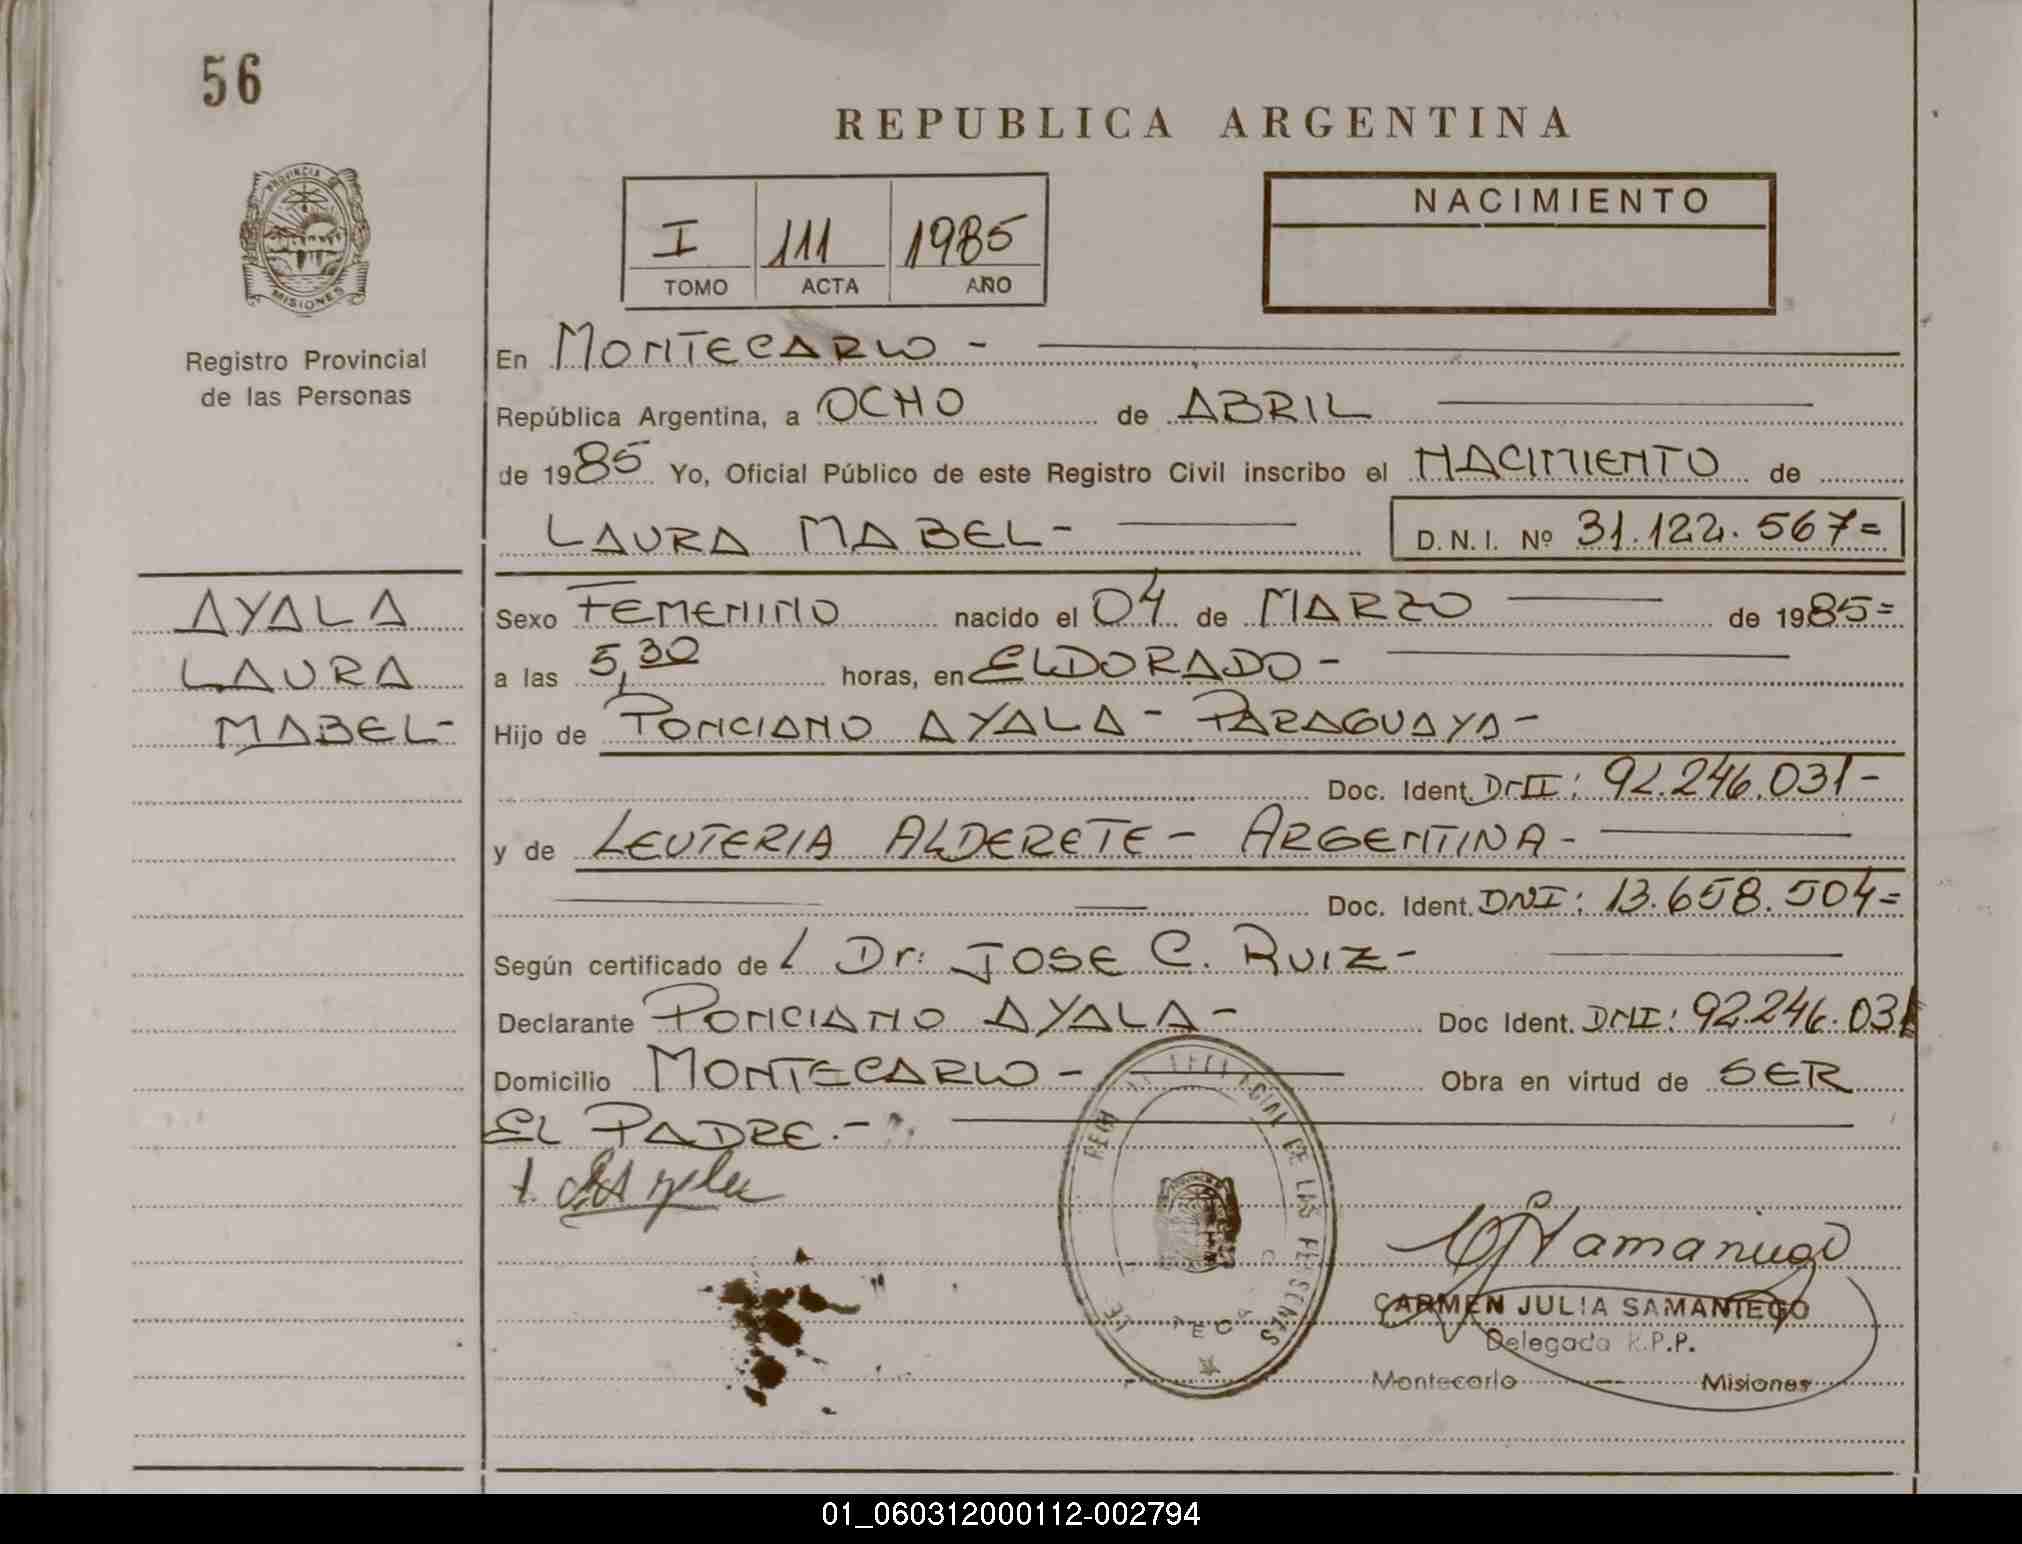 56
REPUBLICA ARGENTINA
PROVINCIA DE
MISIONES
Registro Provincial
de las Personas
I 111 1985
TOMO ACTA AÑO
NACIMIENTO
En MONTECARLO -
República Argentina, a OCHO de ABRIL
de 1985 Yo, Oficial Público de este Registro Civil inscribo el NACIMIENTO de
LAURA MABEL- D.N.I. Nº 31.122.567=
AYALA
LAURA
MABEL-
Sexo FEMENINO nacido el 04 de MARZO de 1985=
a las 5,30 horas, en ELDORADO -
Hijo de PONCIANO AYALA - PARAGUAYA -
Doc. Ident. DNI: 92.246.031-
y de LEUTERIA ALDERETE - ARGENTINA -
Doc. Ident. DNI: 13.658.504=
Según certificado de l Dr: JOSE C. RUIZ-
Declarante PONCIANO AYALA - Doc Ident. DNI: 92.246.031
Domicilio MONTECARLO - Obra en virtud de SER
EL PADRE.-
DE LAS PERSONAS
CARMEN JULIA SAMANIEGO
Delegada R.P.P.
Montecarlo Misiones
01_060312000112-002794